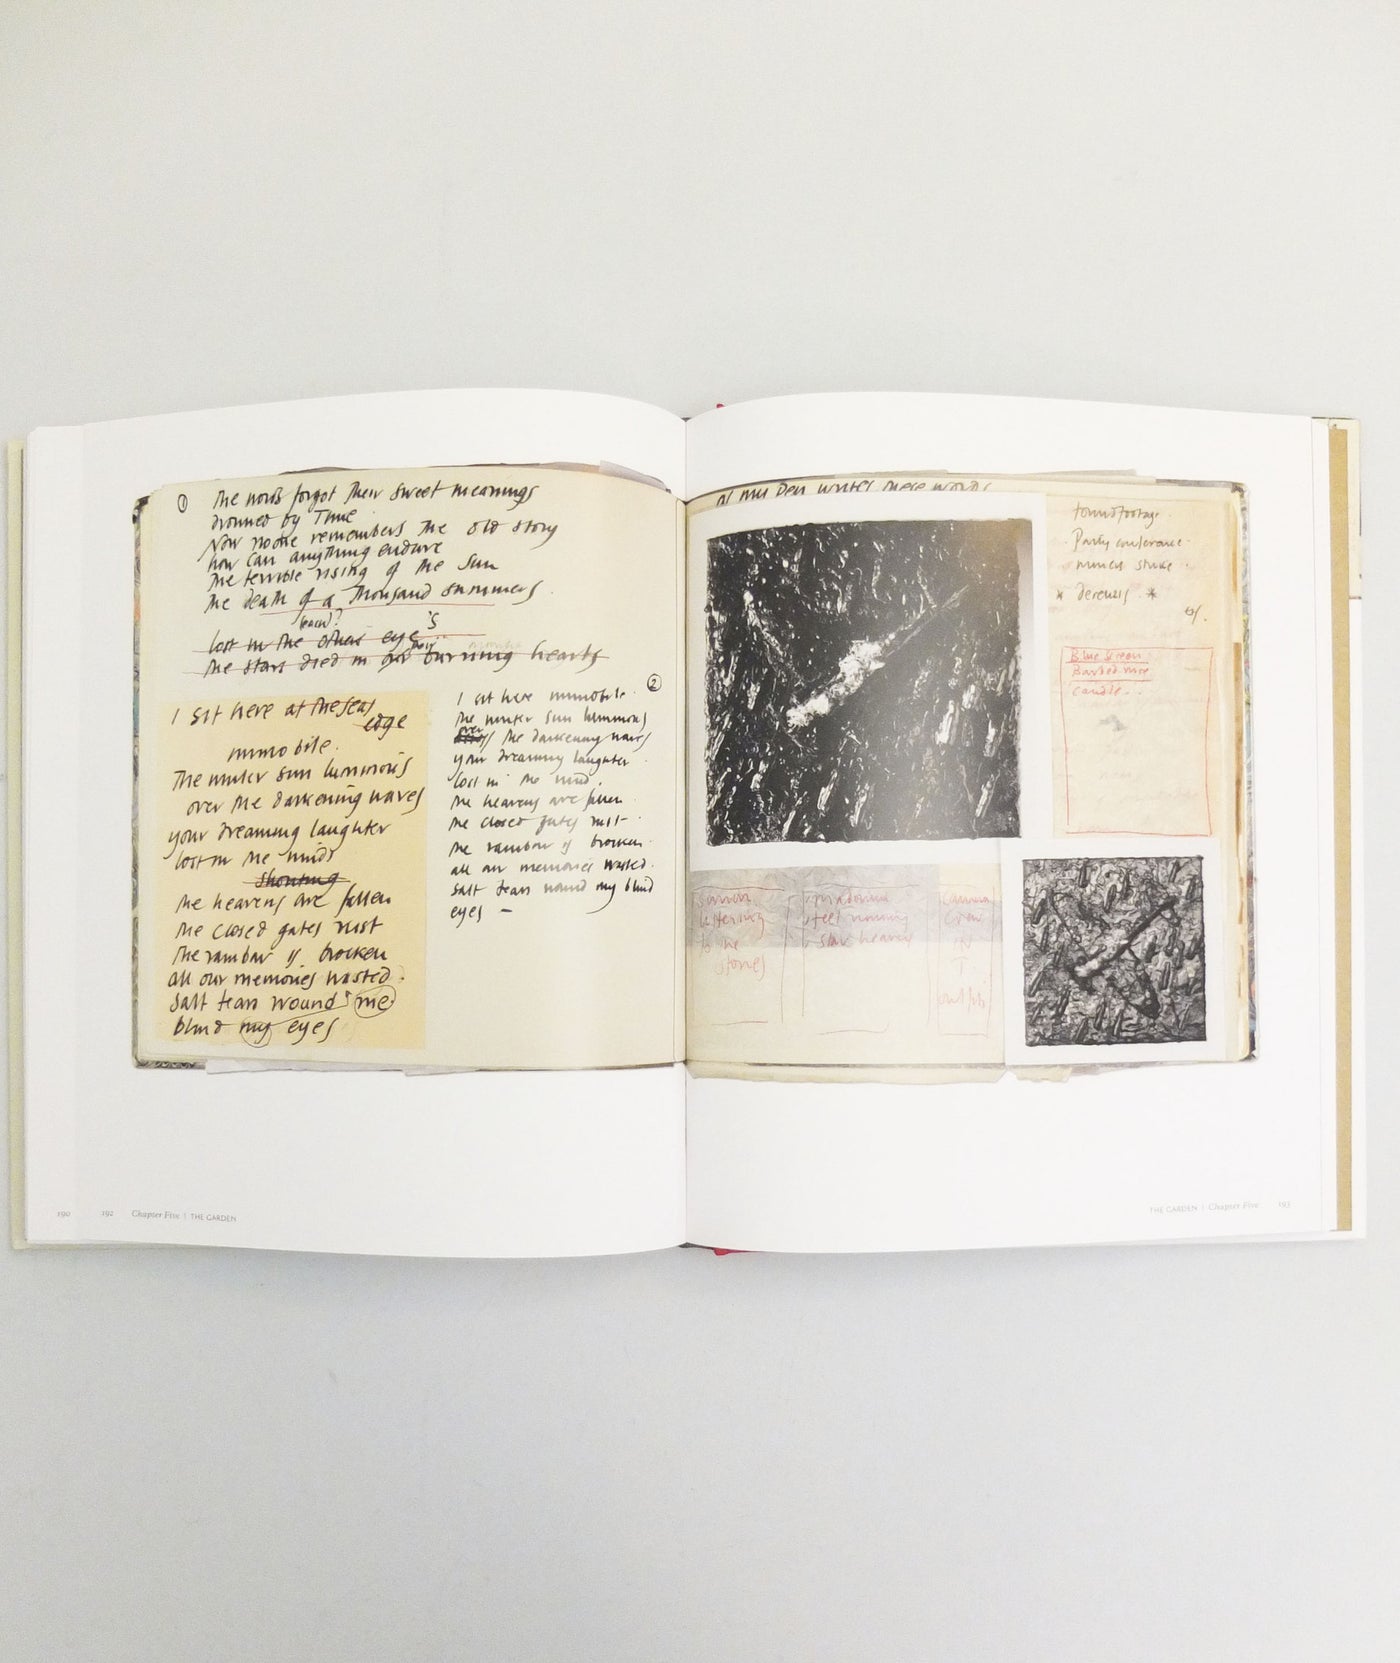 ①
The words forgot their sweet meanings
Drowned by Time
Now noone remembers the old story
how can anything endure
The terrible rising of the Sun
The death of a thousand summers.
lost in the others eye's
The stars died in our burning hearts
I sit here at the seas
edge
immobile.
The winter sun luminous
over the darkening waves
your dreaming laughter
lost in the winds
Shouting
The heavens are fallen
The closed gates rust
The rainbow is brocken
all our memories wasted.
Salt tears wound me
blind my eyes
②
I sit here immobile.
The winter sun luminous
over the darkening waves
your dreaming laughter
lost in the wind.
The heavens are fallen
The closed gates rust
The rainbow is brocken
all our memories wasted.
Salt tears wound my blind
eyes –
as my pen writes these words
found footage.
Party conference.
miners strike.
* *
Blue Screen
Barbed wire
candle..
lettering
to the
stones
feet running
star heavens
camera
crew
IN
190
192 Chapter Five | THE GARDEN
THE GARDEN | Chapter Five 193